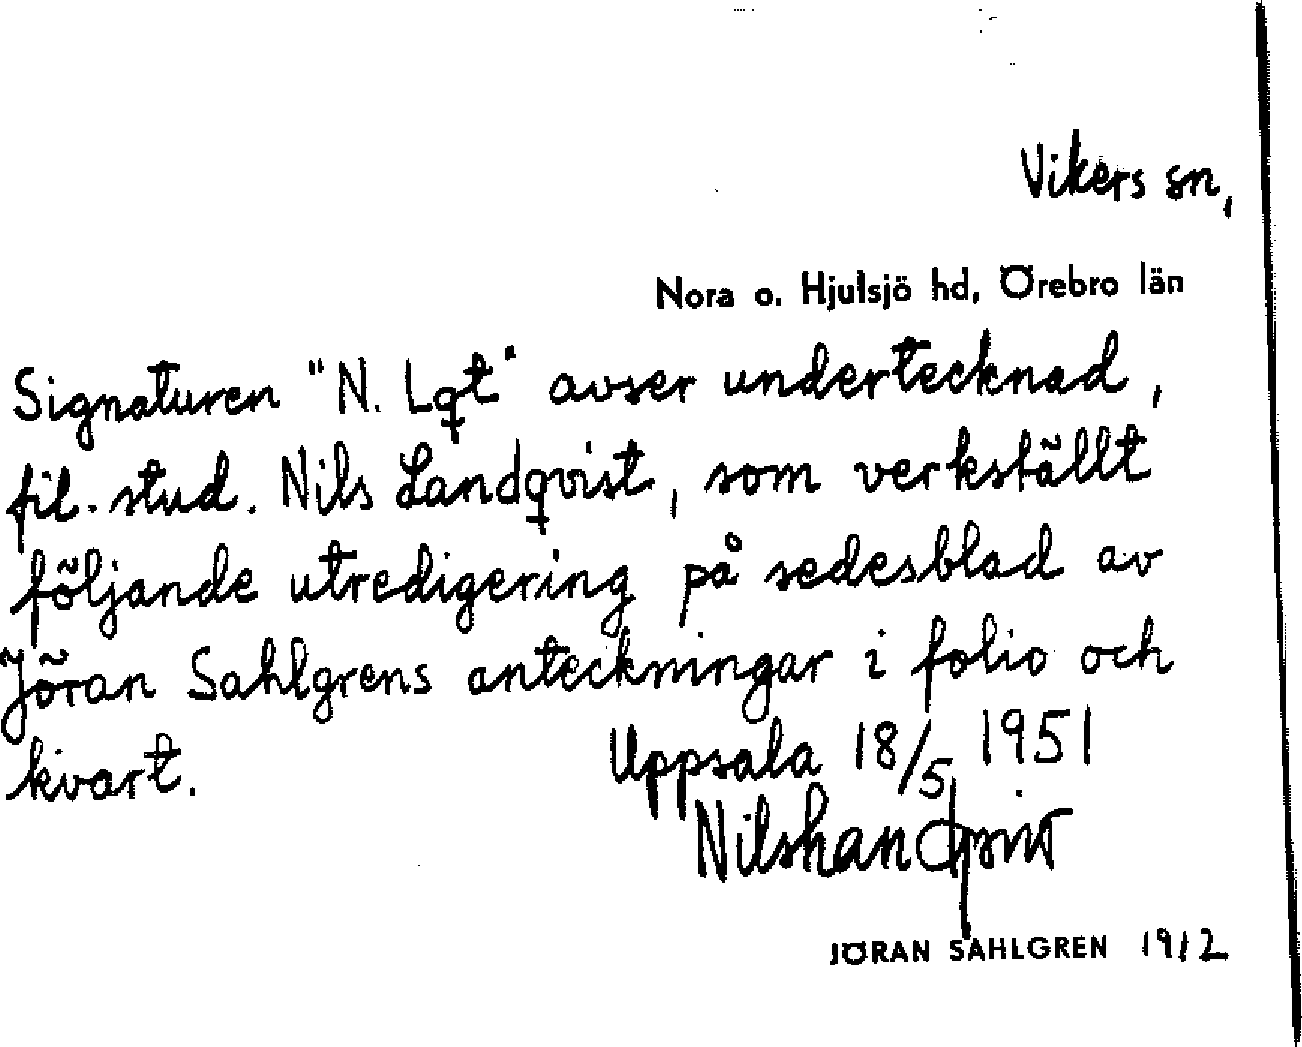 Vikers sn,
Nora o. Hjulsjö hd, Örebro län
Signaturen "N. Lqt" avser undertecknad,
fil. stud. Nils Landqvist, som verkställt
följande utredigering på sedesblad av
Jöran Sahlgrens anteckningar i folio och
kvart.
Uppsala 18/5 1951
Nils Landqvist
JÖRAN SAHLGREN 1912